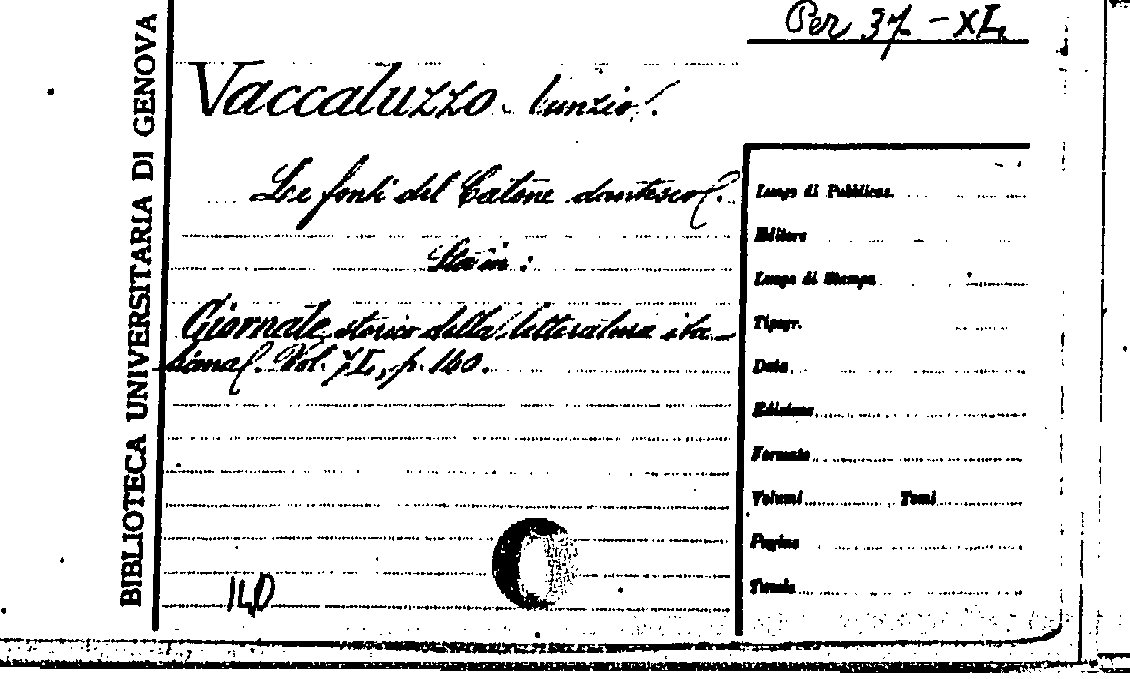 BIBLIOTECA UNIVERSITARIA DI GENOVA
Per 37 - XL
Vaccaluzzo Nunzio.
Le fonti del Catone dantesco.
Sta in:
Giornale storico della letteratura ita-
liana. Vol. XL, p. 140.
140
Luogo di Pubblicaz.
Editore
Luogo di Stampa
Tipogr.
Data
Edizione
Formato
Volumi Tomi
Pagine
Tavole